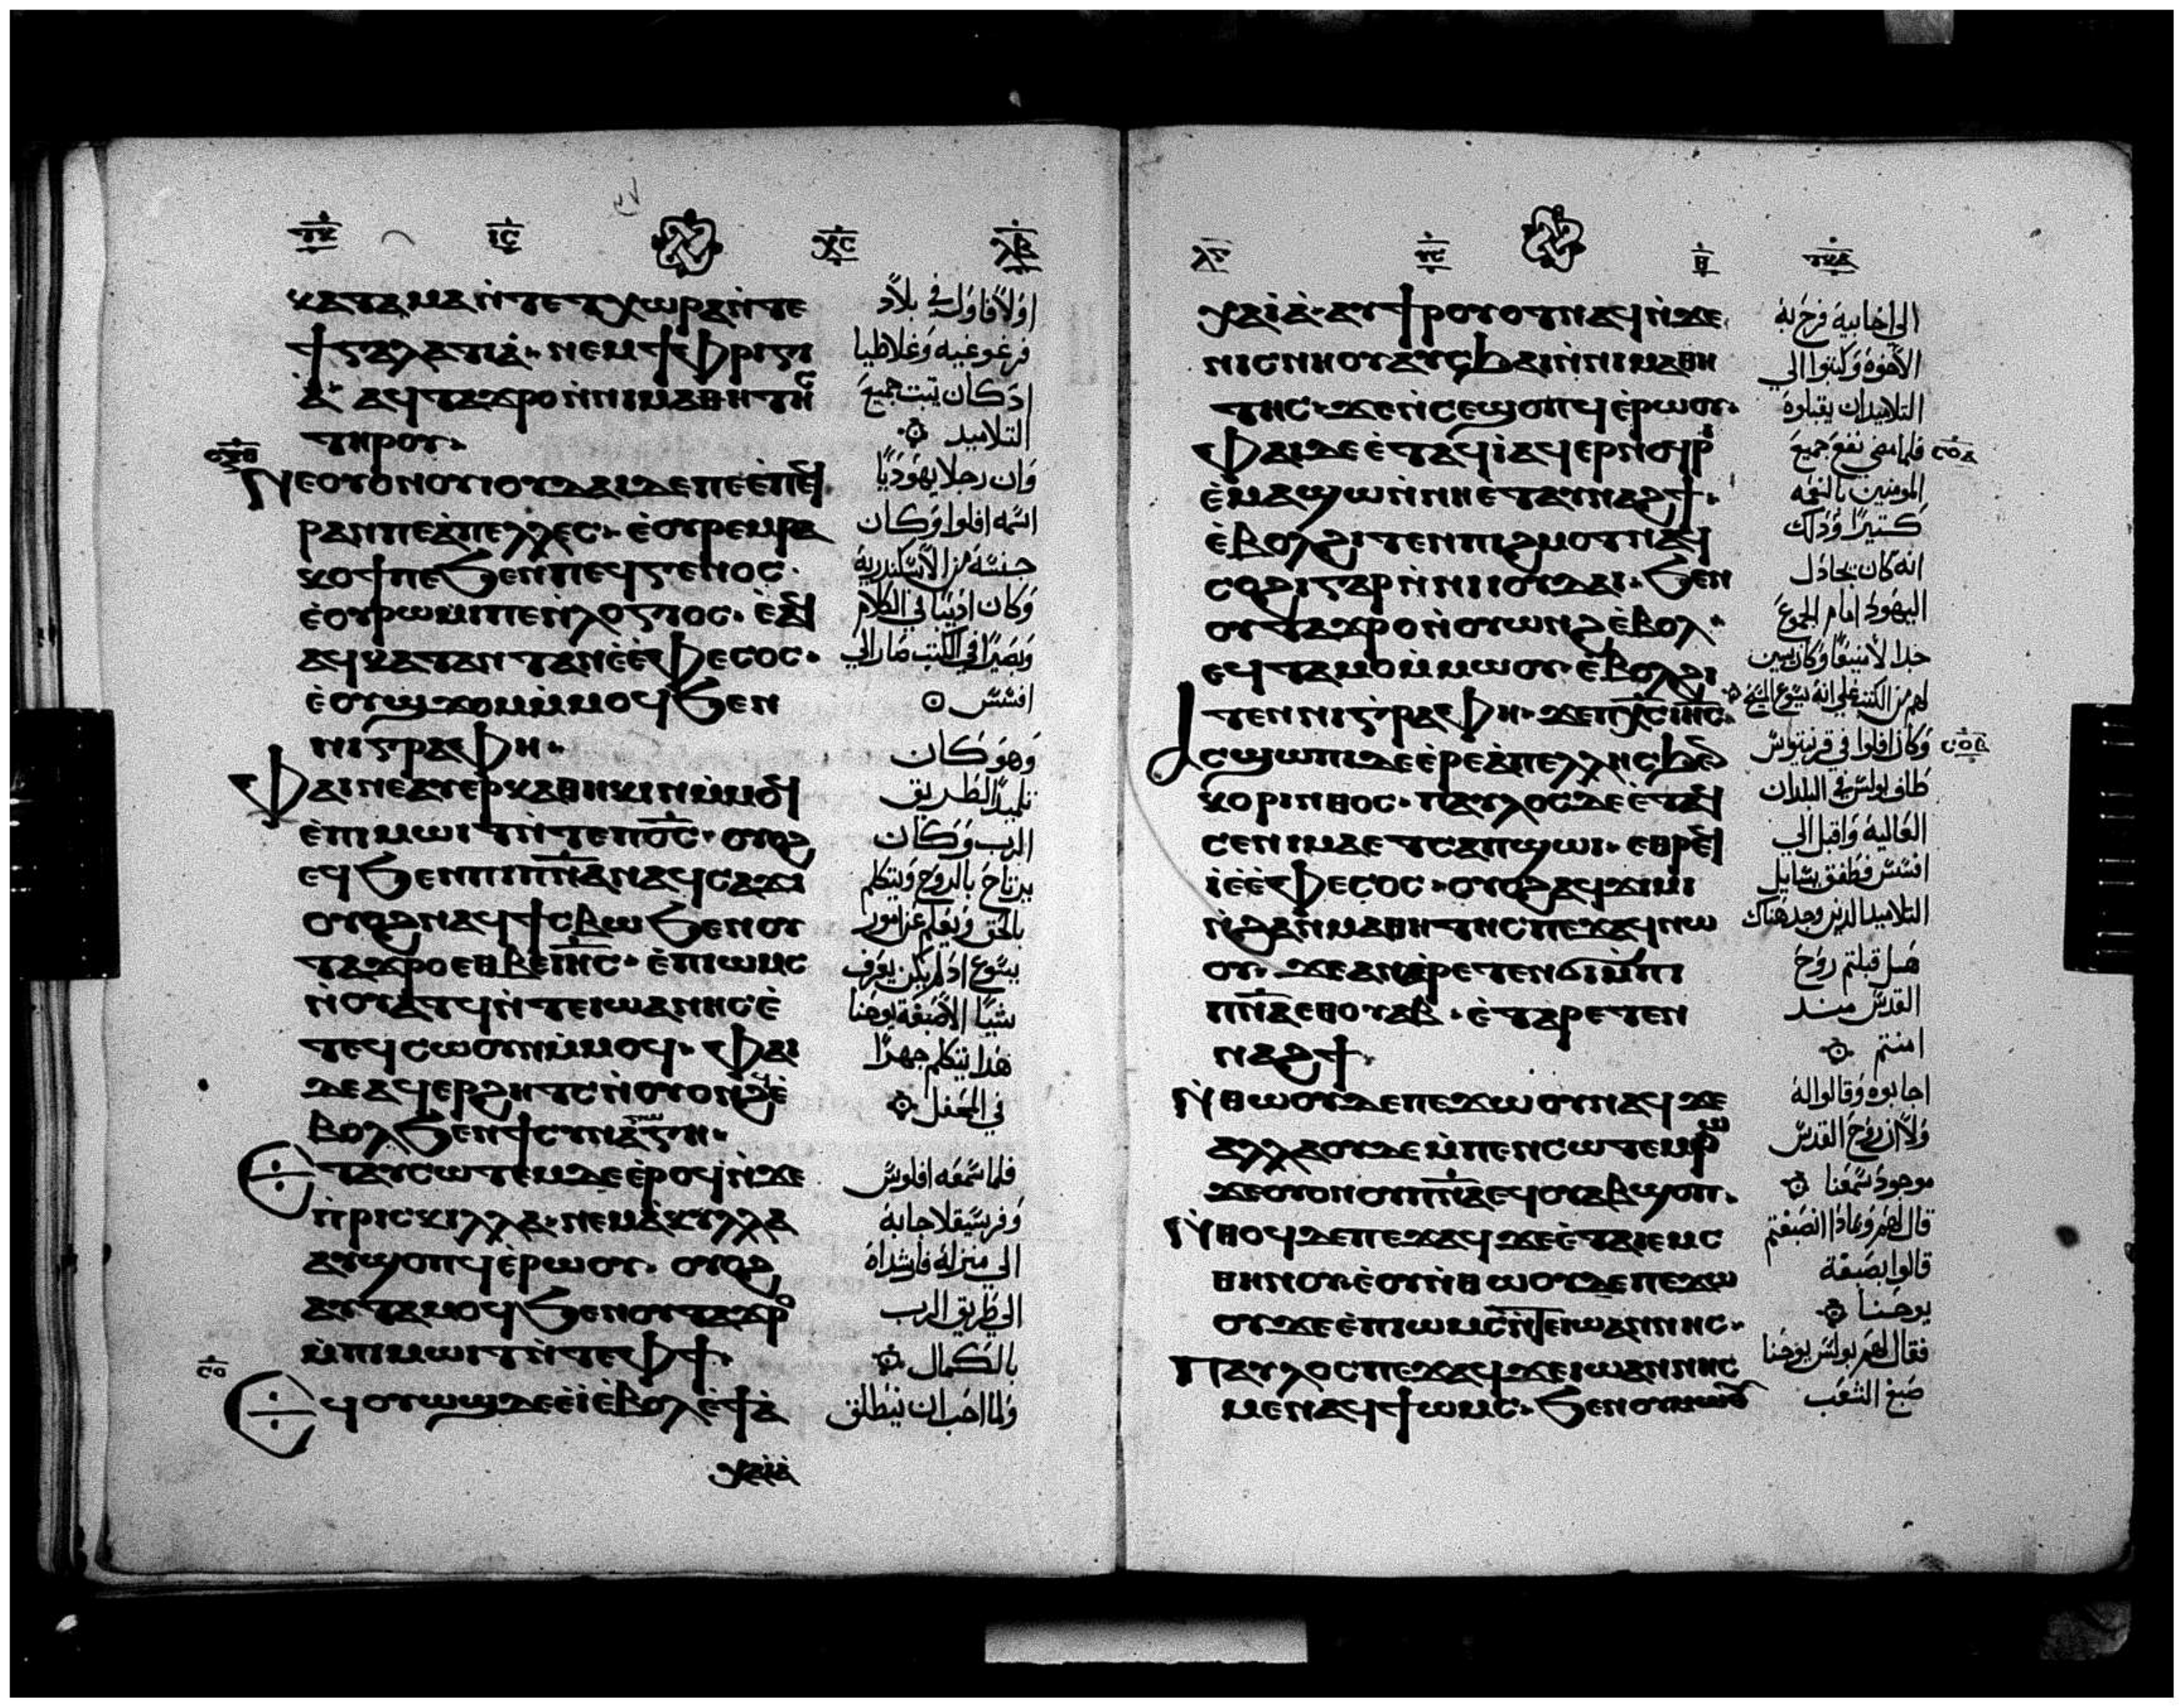 ⲕⲁⲧⲁⲙⲁⲛ̀ⲧⲉⲧⲭⲱⲣⲁⲛ̀ⲧⲉ
ϯⲅⲁⲗⲁⲧⲓⲁ̀· ⲛⲉⲙϯⲫⲣⲓⲅⲓ
ⲁ̀· ⲁϥⲧⲁϫⲣⲟⲛ̀ⲛⲓⲙⲁⲑⲏⲧⲏⲥ
ⲧⲏⲣⲟⲩ·
ⲛⲉⲟⲩⲟⲛⲟⲩⲓⲟⲩⲇⲁⲓⲇⲉⲡⲉⲉ̀ⲡⲉϥ
ⲣⲁⲛⲡⲉⲁ̀ⲡⲉⲗⲗⲉⲥ· ⲉ̀ⲟⲩⲣⲉⲙⲣⲁ
ⲕⲟϯⲡⲉϧⲉⲛⲡⲉϥⲅⲉⲛⲟⲥ·
ⲉ̀ⲟⲩⲣⲱⲙⲓⲡⲉⲛ̀ⲗⲟⲅⲓⲟⲥ· ⲉ̀ⲁϥ
ⲁϥⲕⲁⲧⲁⲛⲧⲁⲛⲉ̀ⲉ̀ⲫⲉⲥⲟⲥ·
ⲉ̀ⲟⲩϣϫⲟⲙⲙ̀ⲙⲟϥϧⲉⲛ
ⲛⲓⲅⲣⲁⲫⲏ·
ⲫⲁⲓⲛⲉⲁⲩⲉⲣⲕⲁⲑⲏⲕⲓⲛⲙ̀ⲙⲟϥ
ⲉ̀ⲡⲓⲙⲱⲓⲧⲛ̀ⲧⲉⲡⲟ̅ⲥ̅· ⲟⲩⲟϩ
ⲉϥϧⲉⲛⲡⲓⲡⲛ̅ⲁ̅ⲛⲁϥⲥⲁϫⲓ
ⲟⲩⲟϩⲛⲁϥϯⲥⲃⲱϧⲉⲛⲟⲩ
ⲧⲁϫⲣⲟⲉⲑⲃⲉⲓ̅ⲏ̅ⲥ̅· ⲉ̀ⲡⲓⲱⲙⲥ
ⲛ̀ⲟⲩⲁⲧϥⲛ̀ⲧⲉⲓⲱⲁⲛⲛⲏⲥⲉ̀
ⲧⲉϥⲥⲱⲟⲩⲛⲙ̀ⲙⲟϥ· ⲫⲁⲓ
ⲇⲉⲁϥⲉⲣϩⲏⲧⲥⲛ̀ⲟⲩⲟⲛϩϥⲉ̀
ⲃⲟⲗϧⲉⲛϯⲥⲩⲛⲁⲅⲱⲅⲏ·
ⲉⲧⲁⲩⲥⲱⲧⲉⲙⲇⲉⲉ̀ⲣⲟϥⲛ̀ϫⲉ
ⲡ̀ⲣⲓⲥⲕⲓⲗⲗⲁ· ⲛⲉⲙⲁ̀ⲕⲩⲗⲗⲁ
ⲁⲩϣⲟⲡϥⲉ̀ⲣⲱⲟⲩ· ⲟⲩⲟϩ
ⲁⲩⲧⲁⲙⲟϥϧⲉⲛⲟⲩⲧⲁϫⲣⲟ
ⲙ̀ⲡⲓⲙⲱⲓⲧⲛ̀ⲧⲉⲫϯ·
ⲉϥⲟⲩⲱϣⲇⲉⲉ̀ⲓ̀ⲉ̀ⲃⲟⲗⲉ̀ϯⲁ̀
ⲭⲁⲓⲁ̀
اولا فاول في بلاد
فرغوغيه وغلاطيا
اد كان يتبت جميع
التلاميد
وان رجلا يهوديا
اسمه افلوا وكان
جنسه من الاسكندرية
وكان اديبا في الكلام
وبصيرا في الكتب صار الي
افسس
وهو كان
تلميد الطريق
الرب وكان
يرتاح بالروح ويتكلم
بالحق ويعلم عن امور
يسوع اد لم يكن يعرف
شيا الا صبغة يوحنا
هدا يتكلم جهرا
في المحفل
فلما سمعه افلوس
وفرسيقلا جابه
الي منزله فارشداه
الي طريق الرب
بالكمال
ولما احب ان ينطلق
ⲭⲁⲓ̀ⲁ̀· ⲁⲩϯⲣⲟⲩⲟⲧⲛⲁϥⲛ̀ϫⲉ
ⲛⲓⲥⲛⲏⲟⲩⲁⲩⲥϧⲁⲓⲛ̀ⲛⲓⲙⲁⲑⲏ
ⲧⲏⲥ· ϫⲉⲛ̀ⲥⲉϣⲟⲡϥⲉ̀ⲣⲱⲟⲩ·
ⲫⲁⲓⲇⲉⲉ̀ⲧⲁϥⲓ̀ⲁϥⲉⲣⲛ̀ⲟϥⲣⲓ
ⲉ̀ⲙⲁϣⲱⲛ̀ⲛⲏⲉ̀ⲧⲁⲩⲛⲁϩϯ·
ⲉ̀ⲃⲟⲗϩⲓⲧⲉⲛⲡⲓϩⲙⲟⲧⲛⲁϥ
ⲥⲟϩⲓⲅⲁⲣⲛ̀ⲛⲓⲓⲟⲩⲇⲁⲓ· ϧⲉⲛ
ⲟⲩⲧⲁϫⲣⲟⲛ̀ⲟⲩⲱⲛϩⲉ̀ⲃⲟⲗ·
ⲉϥⲧⲁⲙⲟⲙ̀ⲙⲱⲟⲩ· ⲉ̀ⲃⲟⲗϩⲓ
ⲧⲉⲛⲛⲓⲅⲣⲁⲫⲏ· ϫⲉⲡⲭ̅ⲥ̅ⲓⲏ̅ⲥ̅·
ⲁⲥϣⲱⲡⲓⲇⲉⲉ̀ⲣⲉⲁ̀ⲡⲉⲗⲗⲏⲥϧⲉⲛ
ⲕⲟⲣⲓⲛⲑⲟⲥ· ⲡⲁⲩⲗⲟⲥⲇⲉⲉ̀ⲧⲁϥ
ⲥⲉⲛⲓⲙⲁⲉⲧⲥⲁⲡϣⲱⲓ· ⲉⲑⲣⲉϥ
ⲓ̀ⲉ̀ⲉ̀ⲫⲉⲥⲟⲥ· ⲟⲩⲟϩⲁϥϫⲓⲙⲓ
ⲛ̀ϩⲁⲛⲙⲁⲑⲏⲧⲏⲥⲡⲉϫⲁϥⲛⲱ
ⲟⲩ· ϫⲉⲁⲛⲁ̀ⲣⲉⲧⲉⲛϭⲓⲙ̀ⲡⲓ
ⲡⲛ̅ⲁ̅ⲉⲑⲟⲩⲁⲃ· ⲉ̀ⲧⲁⲣⲉⲧⲉⲛ
ⲛⲁϩϯ·
ⲛ̀ⲑⲱⲟⲩⲇⲉⲡⲉϫⲱⲟⲩⲛⲁϥϫⲉ
ⲁⲗⲗⲁⲟⲩⲇⲉⲙ̀ⲡⲉⲛⲥⲱⲧⲉⲙⲣⲱ
ϫⲉⲟⲩⲟⲛⲟⲩⲡⲛ̅ⲁ̅ⲉϥⲟⲩⲁⲃϣⲟⲡ·
ⲛ̀ⲑⲟϥⲇⲉⲡⲉϫⲁϥϫⲉⲉ̀ⲧⲁⲓⲉⲙⲥ
ⲑⲏⲛⲟⲩⲉ̀ⲟⲩⲛ̀ⲑⲱⲟⲩⲇⲉⲡⲉϫⲱ
ⲟⲩϫⲉⲉ̀ⲡⲓⲱⲙⲥⲛ̀ⲧⲉⲓⲱⲁⲛⲛⲏⲥ·
ⲡⲁⲩⲗⲟⲥⲡⲉϫⲁϥϫⲉⲓⲱⲁⲛⲛⲏⲥ
ⲙⲉⲛⲁϥϯⲱⲙⲥ· ϧⲉⲛⲟⲩⲙⲱⲟⲩ
الي اخاييه فرح به
الاخوه وكتبوا الي
التلاميد ان يقبلوه
فلما مضي نفع جميع
المومنين بالنعمه
كتيرا ودلك
انه كان يجادل
اليهود امام الجموع
جدا لا منيفا وكان يبين
لهم من الكتب علي انه يسوع المسيح
وكان افلوا في قرنيتوس
طاف بولس في البلدان
العاليه واقبل الي
افسس فطفق يسايل
التلاميد الدين وجد هناك
هل قبلتم روح
القدس مند
امنتم
اجابوه وقالوا له
ولا ان روح القدس
موجود سمعنا
قال لهم وبمادا انصبغتم
قالوا بصبغة
يوحنا
فقال لهم بولس يوحنا
صبغ الشعب